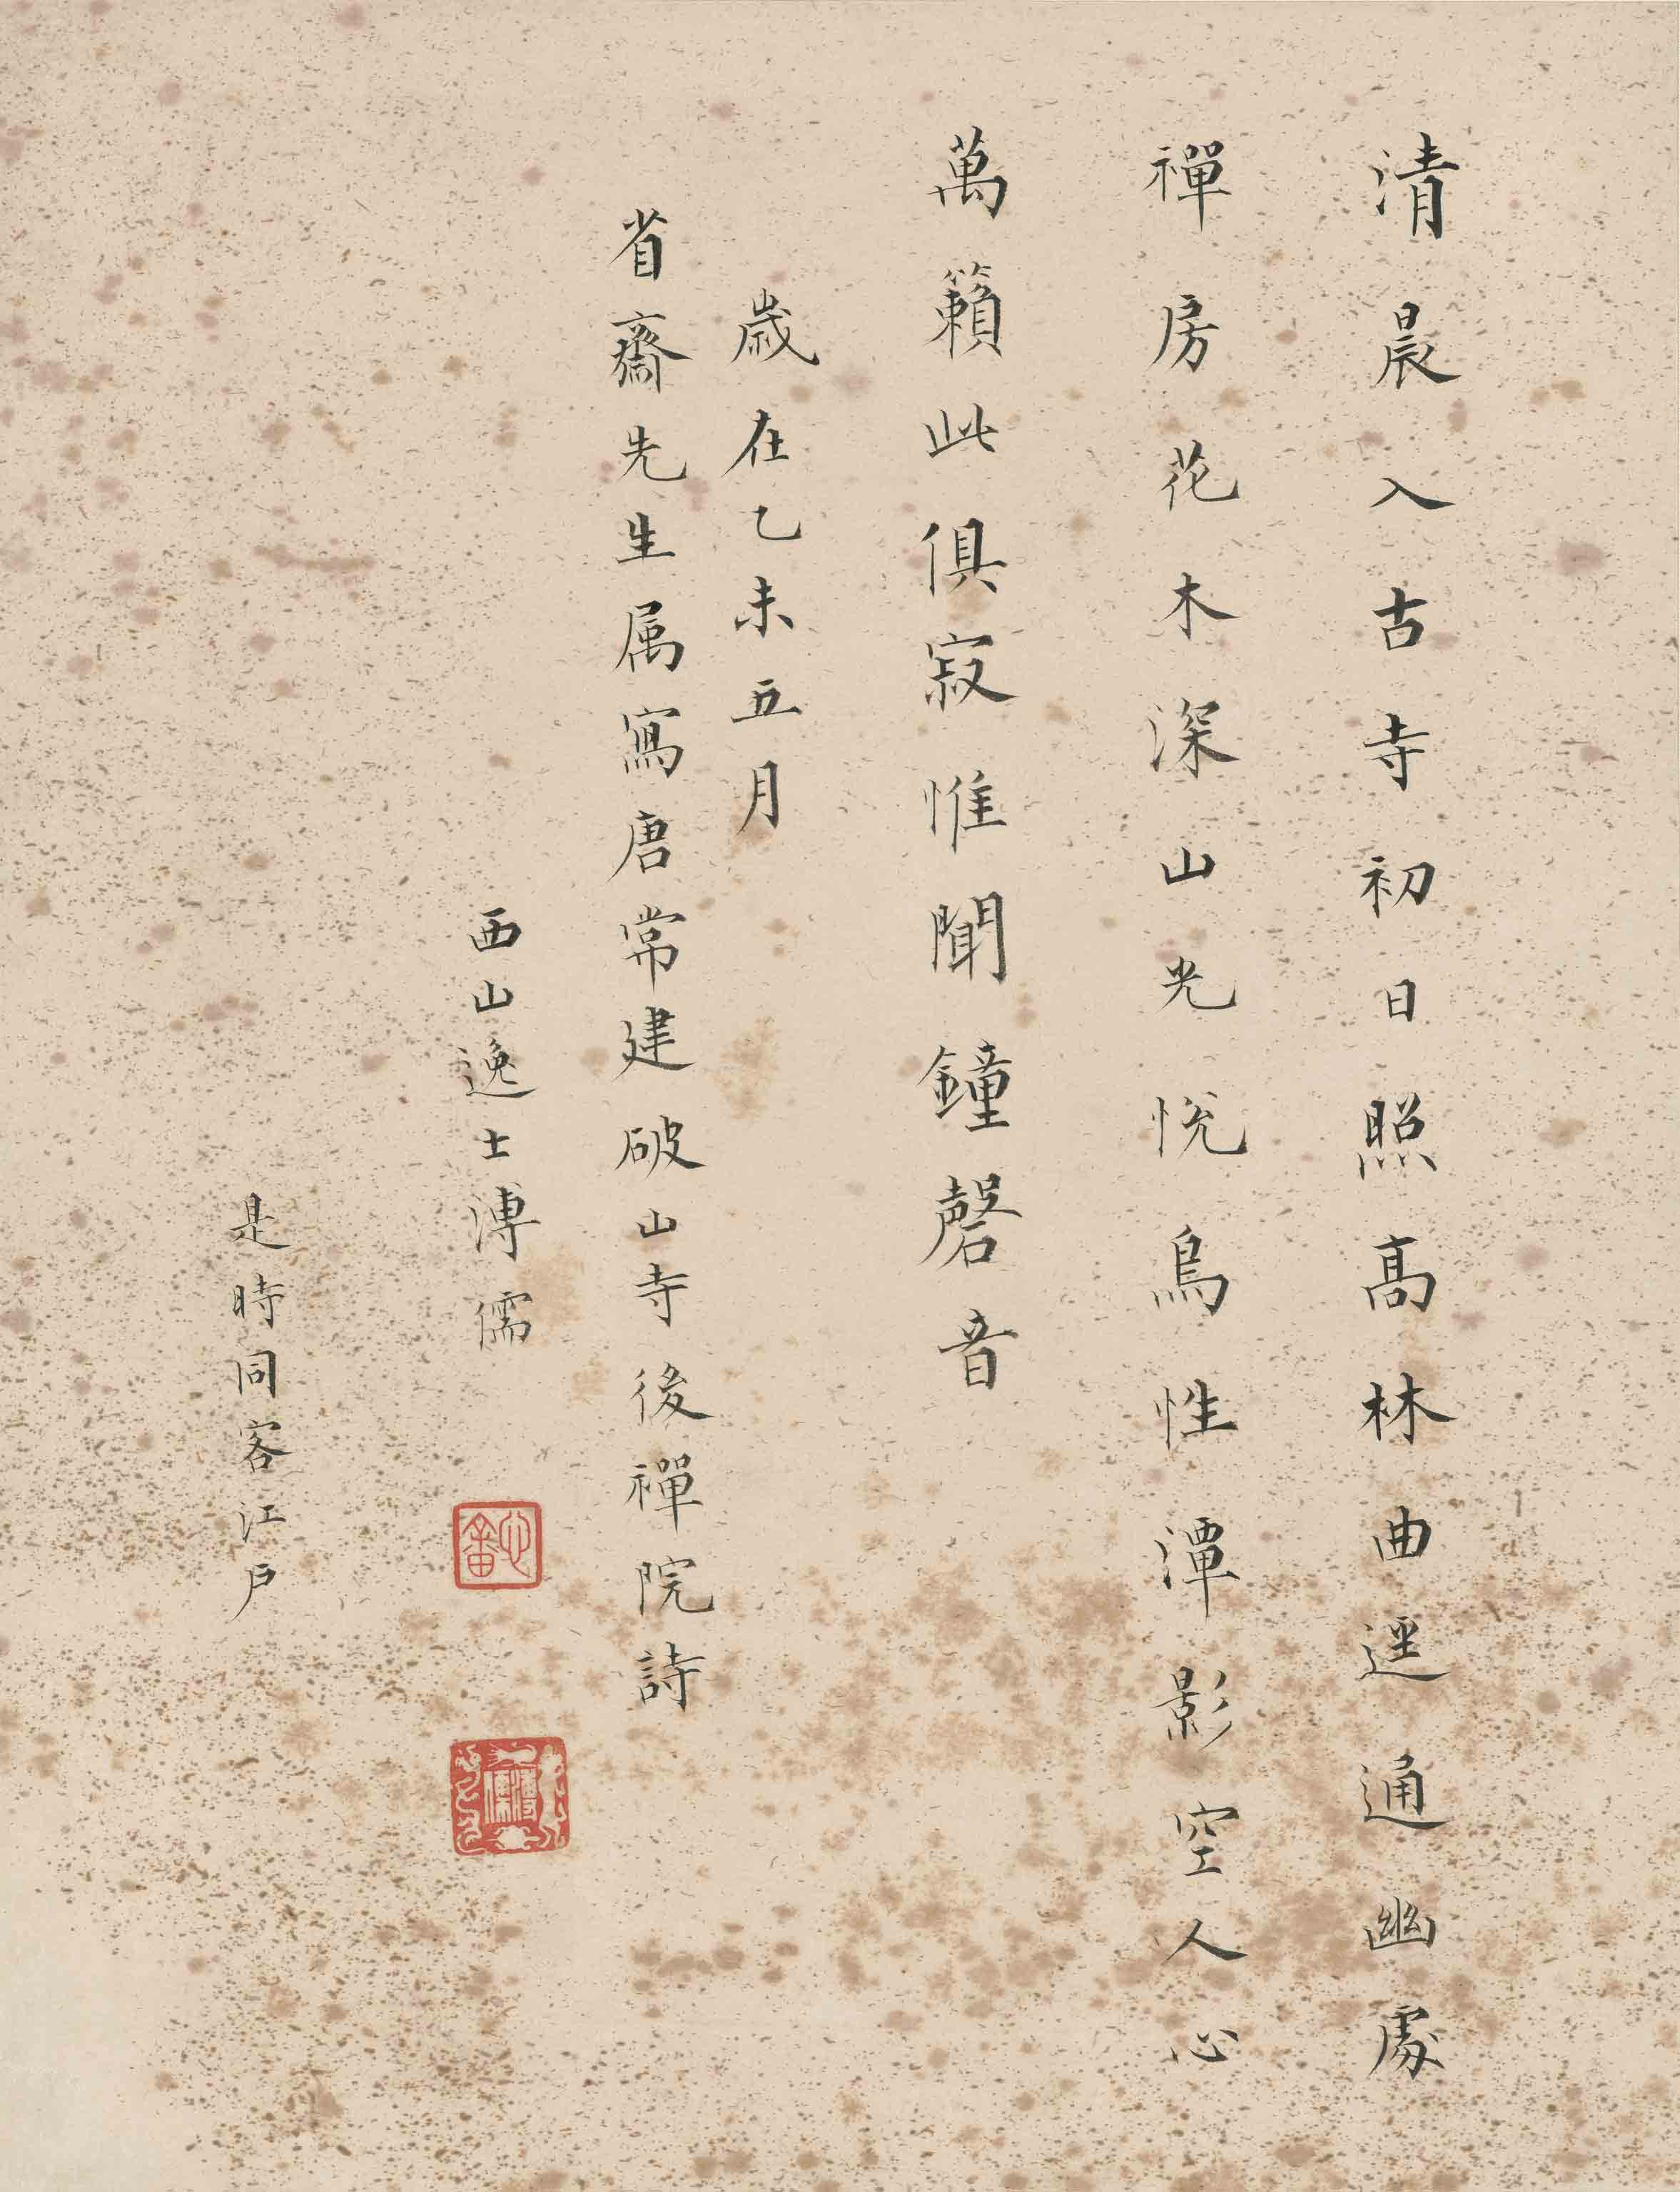 清晨入古寺初日照高林曲逕通幽處
禪房花木深山光悅鳥性潭影空人心
萬籟此俱寂惟聞鐘磬音
歲在乙未五月
省齋先生属寫唐常建破山寺後禪院詩
西山逸士溥儒
心畬
溥儒
是時同客江戶